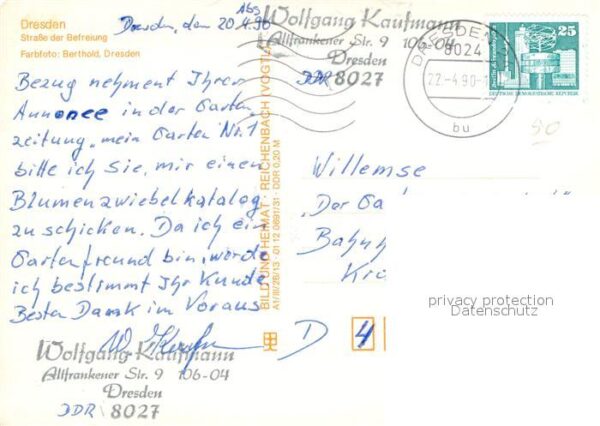 Dresden
Straße der Befreiung
Farbfoto: Berthold, Dresden
Dresden, den 20.4.90
Bezug nehment Ihrer
Annonce in der Garten
zeitung „mein Garten Nr. 1
bitte ich Sie, mir einen
Blumenzwiebelkatalog
zu schicken. Da ich ein
Gartenfreund bin, werde
ich bestimmt Ihr Kunde
Besten Dank im Voraus
W. Kaufmann
Wolfgang Kaufmann
Altfrankener Str. 9 106-04
Dresden
DDR 8027
BILD UND HEIMAT · REICHENBACH (VOGTL)
A1/III/26/13 · 01 12 0691/31 DDR 0,20 M
Abs
Wolfgang Kaufmann
Altfrankener Str. 9 106-04
Dresden
DDR 8027
DRESDEN
8024
22.-4.90-1
bu
25
DEUTSCHE DEMOKRATISCHE REPUBLIK
90
Willemse
„Der Ga
Bahnh
Kr
D 4
privacy protection
Datenschutz